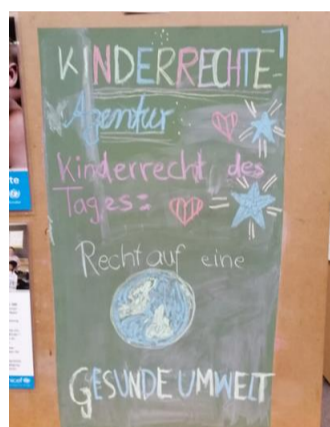 KINDERRECHTE-
Agentur
Kinderrecht des
Tages:
Recht auf eine
GESUNDE UMWELT